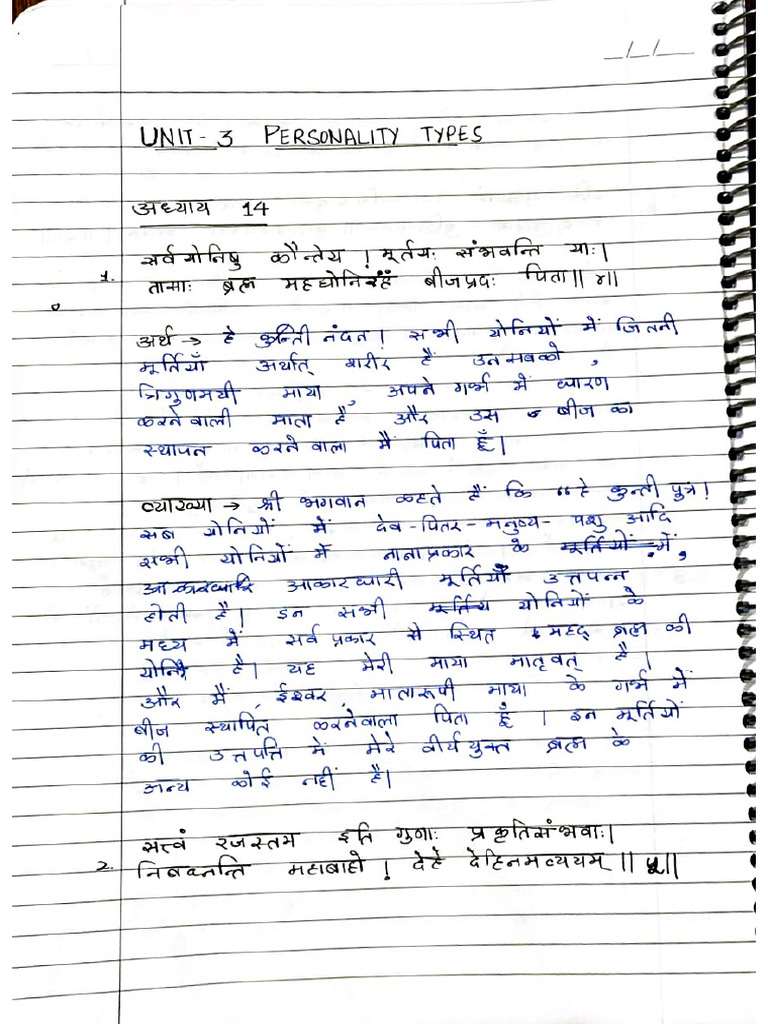 _/_/_
UNIT-3 PERSONALITY TYPES
अध्याय 14
सर्वयोनिषु कौन्तेय ! मूर्तयः संभवन्ति याः।
1. तासाः ब्रह्म महद्योनिरहं बीजप्रदः पिता॥४॥
अर्थ → हे कुन्ती नंदन! सभी योनियों में जितनी
मूर्तियाँ अर्थात् शरीर हैं उन सबको,
त्रिगुणमयी माया, अपने गर्भ में धारण
करने वाली माता है और उस बीज का
स्थापन करने वाला मैं पिता हूँ।
व्याख्या → श्री भगवान कहते हैं कि "हे कुन्ती पुत्र!
सब योनियों में देव-पितर-मनुष्य-पशु आदि
सभी योनियों में नाना प्रकार के मूर्तियों में,
आकारधारी मूर्तियाँ उत्तपन्न
होती है। इन सभी मूर्तिय योनियों के
मध्य में सर्व प्रकार से स्थित महद् ब्रह्म की
योनि है। यह मेरी माया मातृवत् है।
और मैं, ईश्वर, मातारूपी माया के गर्भ में
बीज स्थापित करनेवाला पिता हूँ। इन मूर्तियों
की उत्तपत्ति में मेरे वीर्ययुक्त ब्रह्म के
अन्य कोई नहीं है।
सत्त्वं रजस्तम इति गुणाः प्रकृतिसंभवाः।
2. निबध्नन्ति महाबाहो ! देहे देहिनमव्ययम् ॥५॥